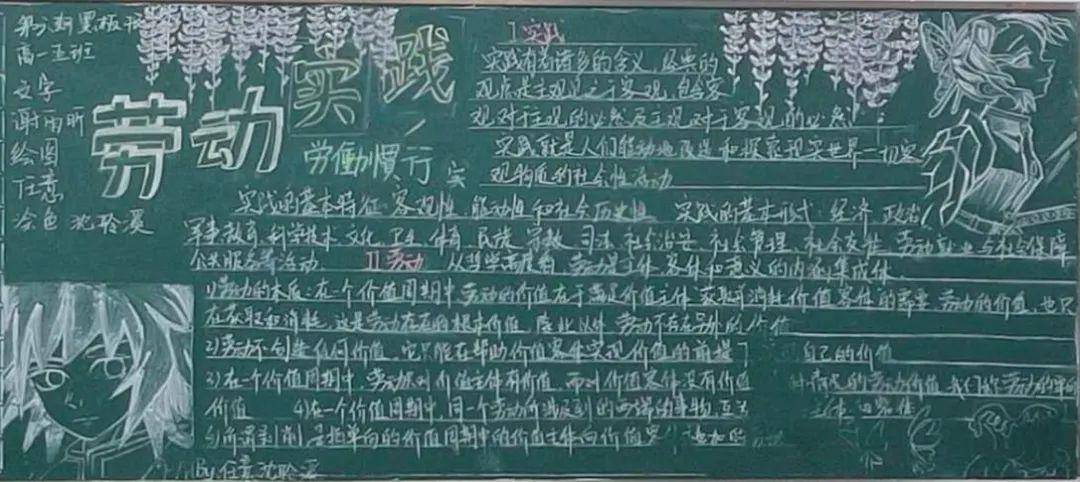 第六期黑板报
高一五班
文字
谢雨昕
绘图
任意
涂色 沈聆溪
劳动实践
劳働慣行
I 实践
实践有着诸多的含义，经典的
观点是主观见之于客观，包含客
观对于主观的必然及主观对于客观的必然
实践就是人们能动地改造和探索现实世界一切客
观物质的社会性活动
实践的基本特征：客观性，能动性和社会历史性 实践的基本形式：经济，政治
军事，教育，科学技术，文化，卫生，体育，民族，宗教，司法，社会治安，社会管理，社会友谊，劳动就业与社会保障
公共服务等活动
II 劳动 从哲学高度看，劳动是主体，客体和意义的内涵集成体
1)劳动的本质：在一个价值周期中，劳动的价值在于满足价值主体获取并消耗价值客体的需要，劳动的价值，也只
在获取和消耗，这是劳动存在的根本价值，除此以外，劳动不存在另外的价值
2)劳动不创造任何价值，它只能在帮助价值客体实现价值的前提下 自己的价值
3)在一个价值周期中，劳动只对价值主体有价值，而对价值客体没有价值
价值 4)在一个价值周期中，同一个劳动所涉及到的两端的事物，互为
5)所谓剥削，是指单向的价值周期中的价值主体向价值客
By 任意 沈聆溪